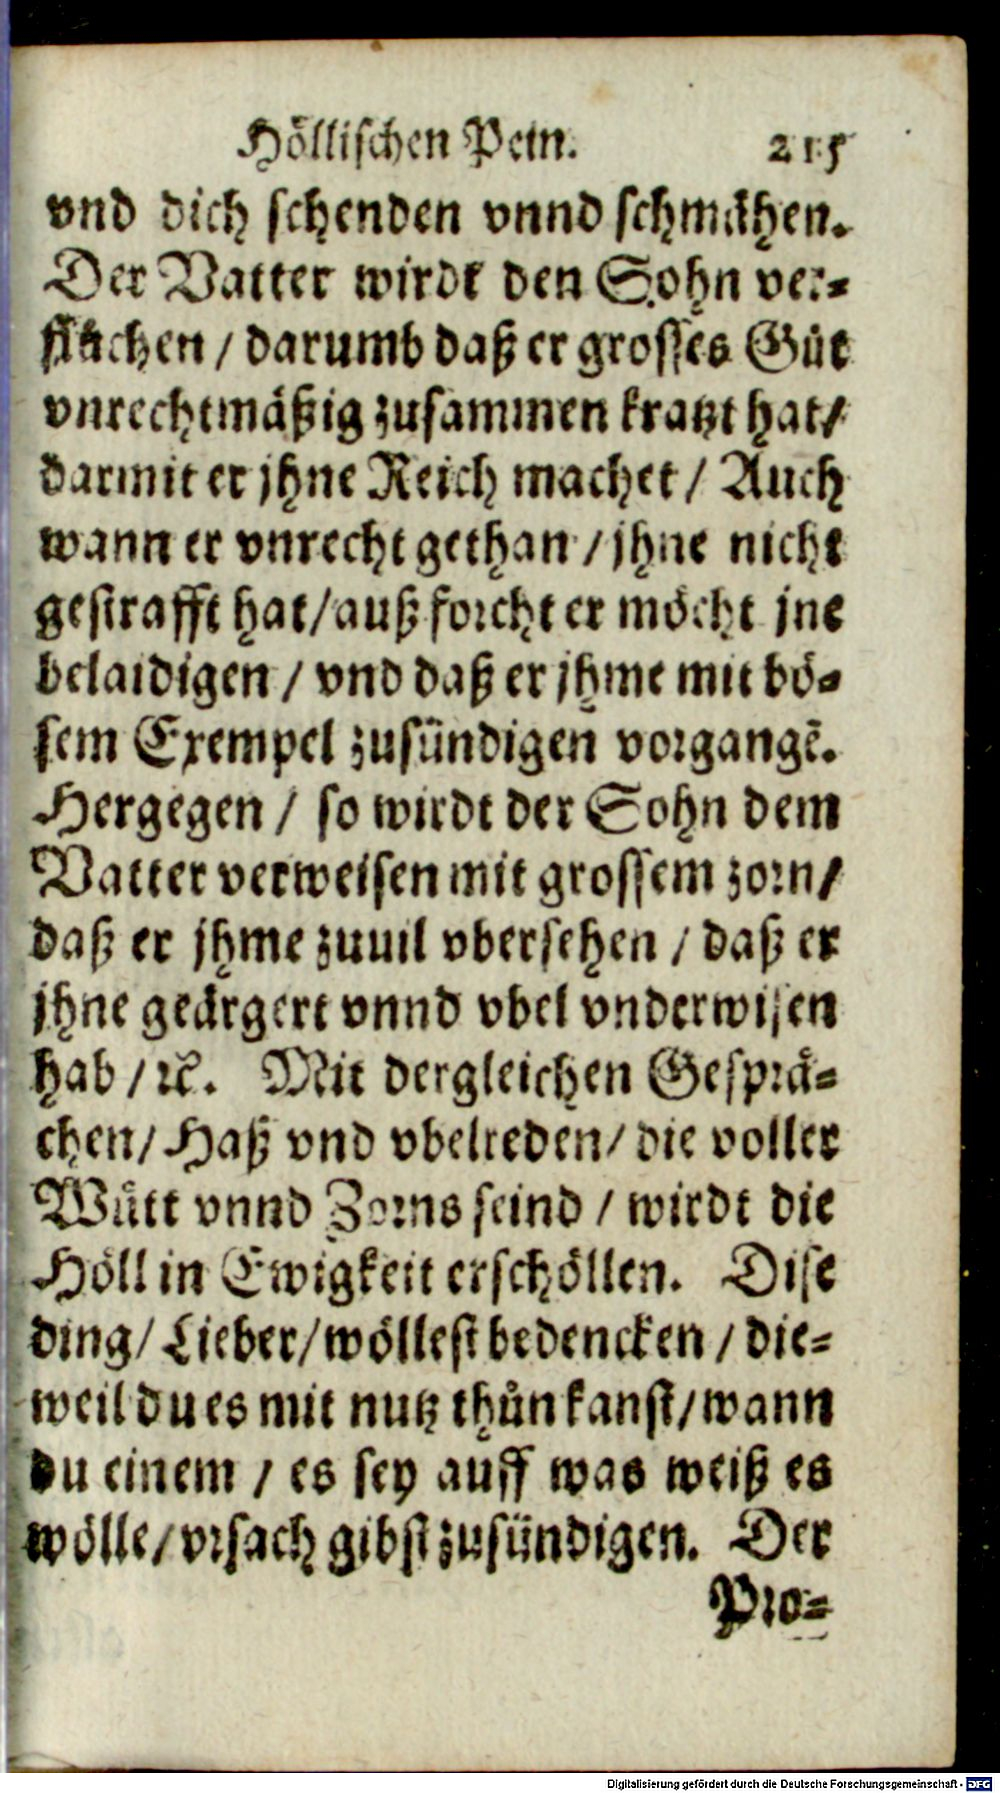 Höllischen Pein. 215
vnd dich schenden vnnd schmähen.
Der Vatter wirdt den Sohn ver-
flůchen / darumb daß er grosses Gůt
vnrechtmäßig zusammen kratzt hat/
darmit er jhne Reich machet / Auch
wann er vnrecht gethan / jhne nicht
gestrafft hat/auß forcht er möcht jne
belaidigen / vnd daß er jhme mit bö-
sem Exempel zusündigen vorgangẽ.
Hergegen / so wirdt der Sohn dem
Vatter verweisen mit grossem zorn/
daß er jhme zuuil vbersehen / daß er
jhne geärgert vnnd vbel vnderwisen
hab / ꝛc. Mit dergleichen Gesprä-
chen/ Haß vnd vbelreden/ die voller
Wütt vnnd Zorns seind / wirdt die
Höll in Ewigkeit erschöllen. Dise
ding/ Lieber/wöllest bedencken / die-
weil du es mit nutz thůn kanst/wann
du einem / es sey auff was weiß es
wölle/vrsach gibst zusündigen. Der
Pro-
Digitalisierung gefördert durch die Deutsche Forschungsgemeinschaft - DFG